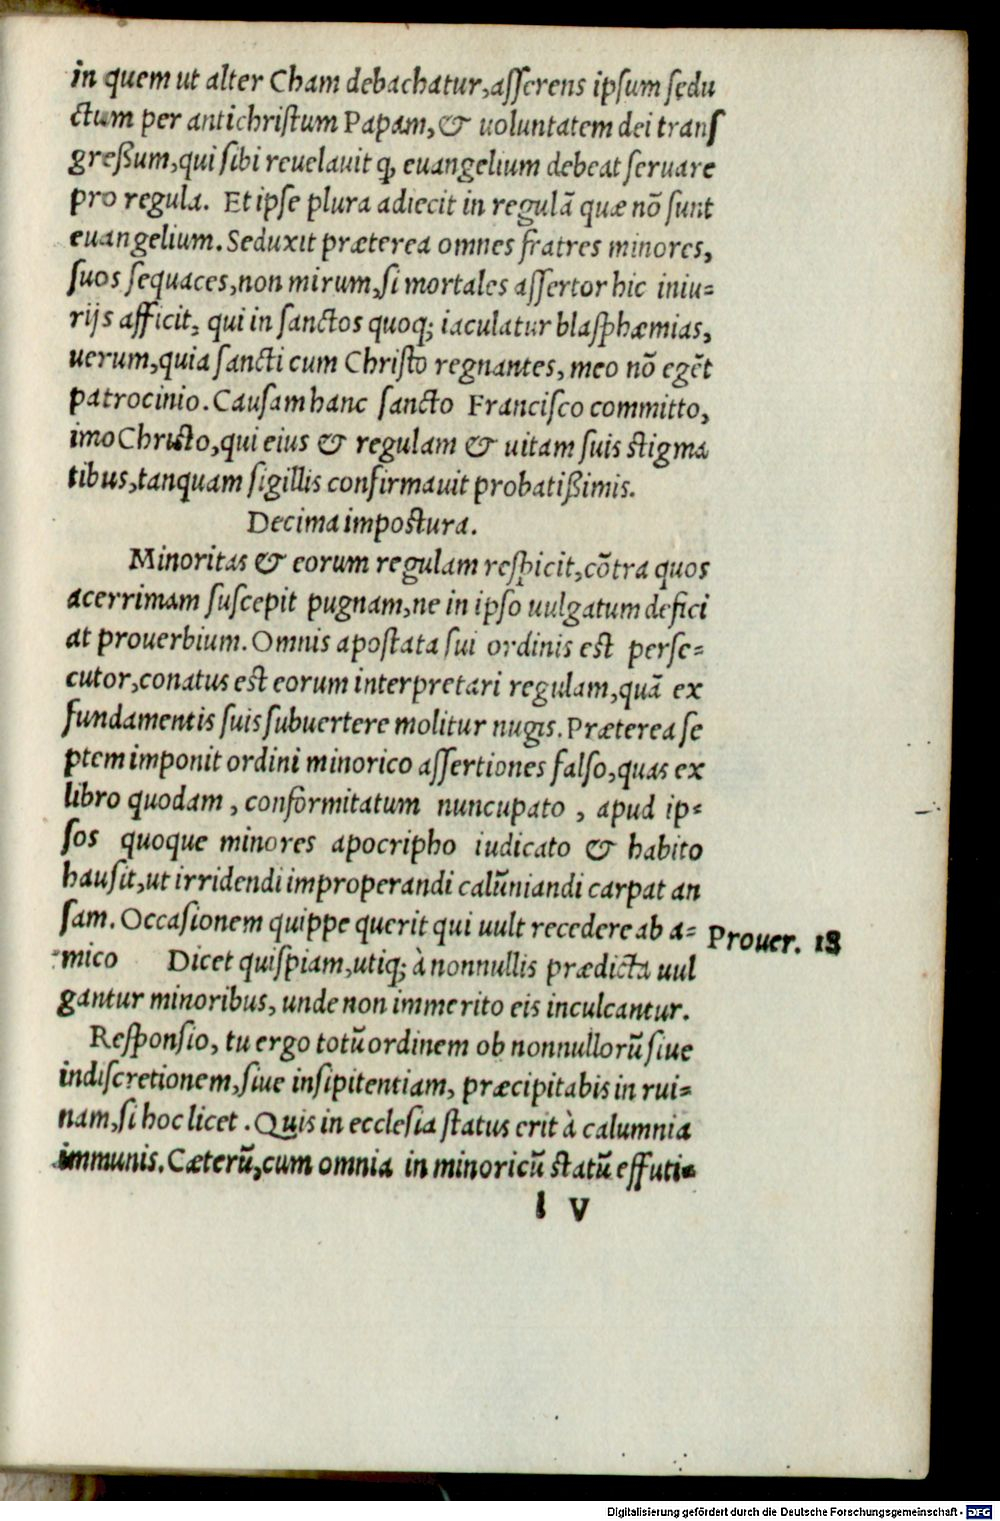 in quem ut alter Cham debachatur, aſſerens ipſum ſedu
ctum per antichriſtum Papam, & uoluntatem dei tranſ
greßum, qui ſibi reuelauit ꝙ euangelium debeat ſeruare
pro regula. Et ipſe plura adiecit in regulā quæ nō ſunt
euangelium. Seduxit præterea omnes fratres minores,
ſuos ſequaces, non mirum, ſi mortales aſſertor hic iniu=
rijs afficit, qui in ſanctos quoq; iaculatur blaſphæmias,
uerum, quia ſancti cum Chriſto regnantes, meo nō egēt
patrocinio. Cauſam hanc ſancto Franciſco committo,
imo Chriſto, qui eius & regulam & uitam ſuis ſtigma
tibus, tanquam ſigillis confirmauit probatißimis.
Decima impoſtura.
Minoritas & eorum regulam reſpicit, cōtra quos
acerrimam ſuſcepit pugnam, ne in ipſo uulgatum defici
at prouerbium. Omnis apoſtata ſui ordinis eſt perſe=
cutor, conatus eſt eorum interpretari regulam, quā ex
fundamentis ſuis ſubuertere molitur nugis. Præterea ſe
ptem imponit ordini minorico aſſertiones falſo, quas ex
libro quodam, conformitatum nuncupato, apud ip=
ſos quoque minores apocripho iudicato & habito
hauſit, ut irridendi improperandi calūniandi carpat an
ſam. Occaſionem quippe querit qui uult recedere ab a=
Prouer. 18
mico Dicet quiſpiam, utiq; à nonnullis prædicta uul
gantur minoribus, unde non immerito eis inculcantur.
Reſponſio, tu ergo totū ordinem ob nonnullorū ſiue
indiſcretionem, ſiue inſipitentiam, præcipitabis in rui=
nam, ſi hoc licet. Quis in eccleſia ſtatus erit à calumnia
immunis. Cæterū, cum omnia in minoricū ſtatū effuti=
l V
Digitalisierung gefördert durch die Deutsche Forschungsgemeinschaft - DFG